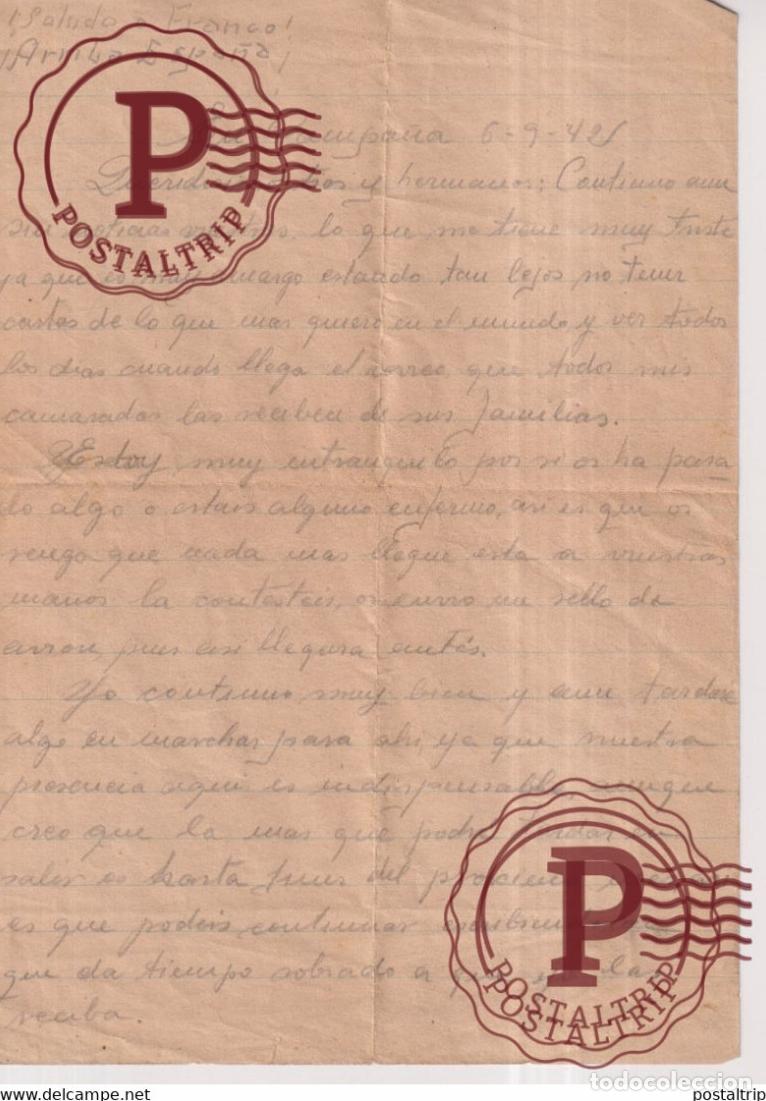 ¡Saludo a Franco!
¡Arriba España!
campaña 6-9-42
Queridos y hermanos: Continuo aun
sin noticias vuestras, lo que me tiene muy triste
ya que es muy amargo estando tan lejos no tener
cartas de lo que mas quiero en el mundo y ver todos
los dias cuando llega el correo, que todos mis
camaradas las reciben de sus familias.
Estoy muy intranquilo por si os ha pasa
do algo o estais alguno enfermo, asi es que os
ruego que cada mas llegue esta a vuestras
manos la contesteis, os envio un sello de
avion, pues asi llegara antes.
Yo continuo muy bien y aun tardare
algo en marchar para ahi, ya que nuestra
presencia aqui es indispensable, aunque
creo que lo mas que podre tardar en
salir es hasta del
es que podeis continuar
que da tiempo sobrado a que las
reciba.
P
POSTALTRIP
P
POSTALTRIP
POSTALTRIP
todocoleccion
©www.delcampe.net
postaltrip